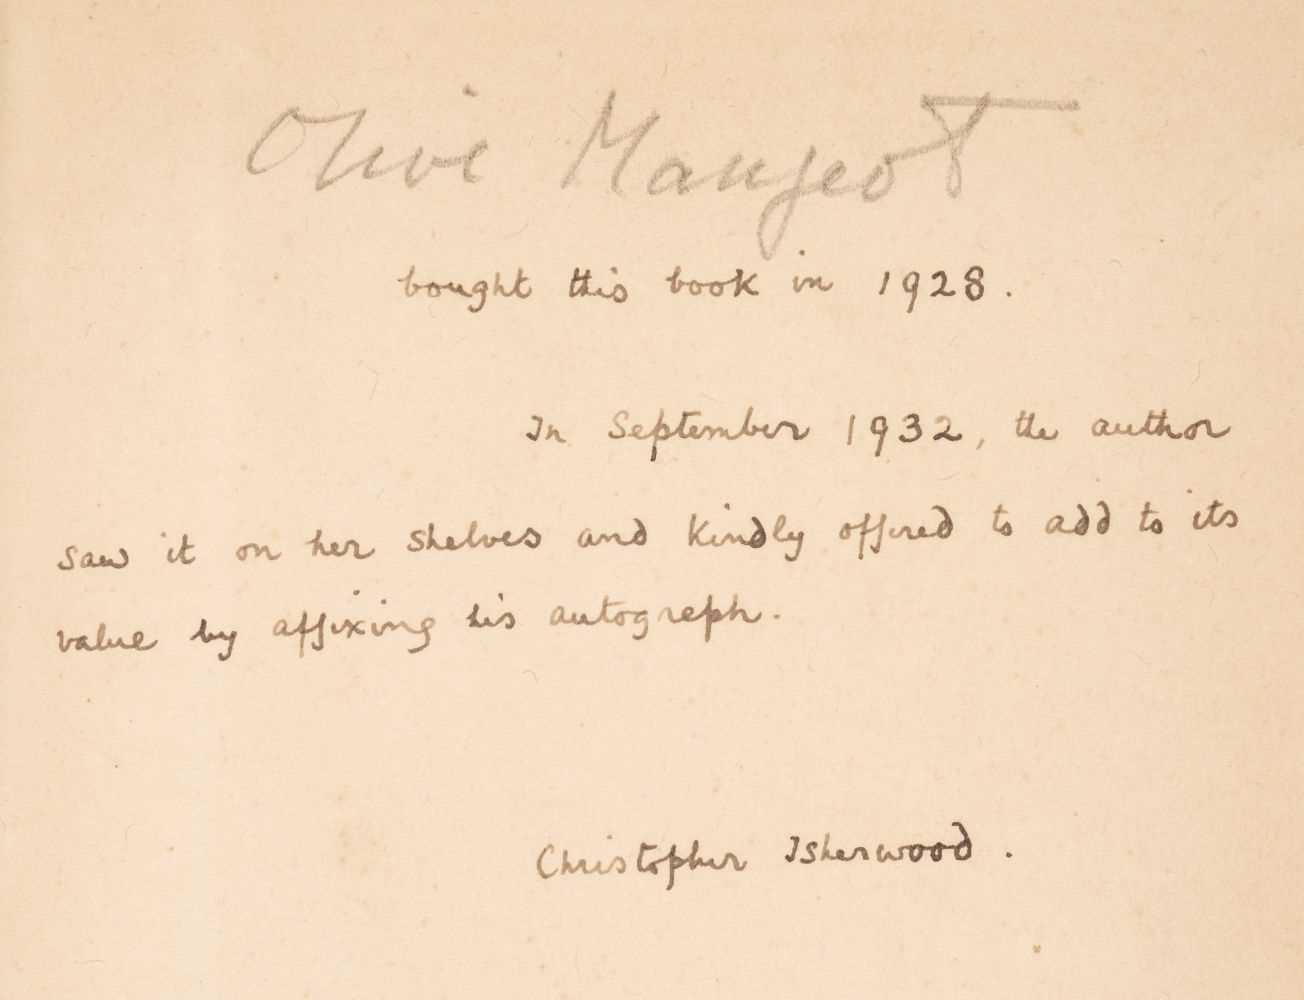 Olive Mangeot
bought this book in 1928.
In September 1932, the author
saw it on her shelves and kindly offered to add to its
value by affixing his autograph.
Christopher Isherwood.